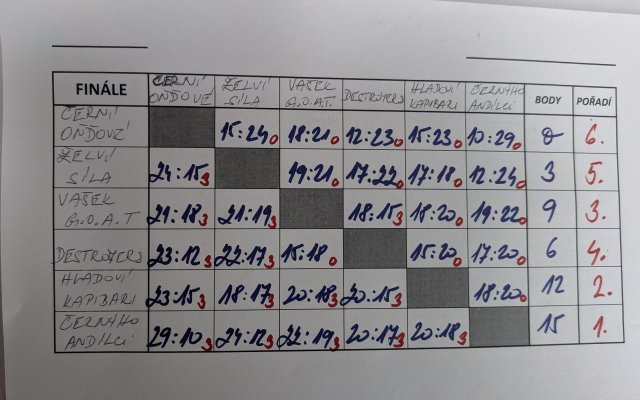 FINÁLE ČERNÍ ONĎOVÉ ŽELVÍ SÍLA VAŠEK G.O.A.T. DESTROYERS HLADOVÍ KAPIBARI ČERNÉHO ANDÍLCI BODY POŘADÍ
ČERNÍ ONĎOVÉ 15:24 0 18:21 0 12:23 0 15:23 0 10:29 0 0 6.
ŽELVÍ SÍLA 24:15 3 19:21 0 17:22 0 17:18 0 12:24 0 3 5.
VAŠEK G.O.A.T 21:18 3 21:19 3 18:15 3 18:20 0 19:22 0 9 3.
DESTROYERS 23:12 3 22:17 3 15:18 0 15:20 0 17:20 0 6 4.
HLADOVÍ KAPIBARI 23:15 3 18:17 3 20:18 3 20:15 3 18:20 0 12 2.
ČERNÉHO ANDÍLCI 29:10 3 24:12 3 22:19 3 20:17 3 20:18 3 15 1.